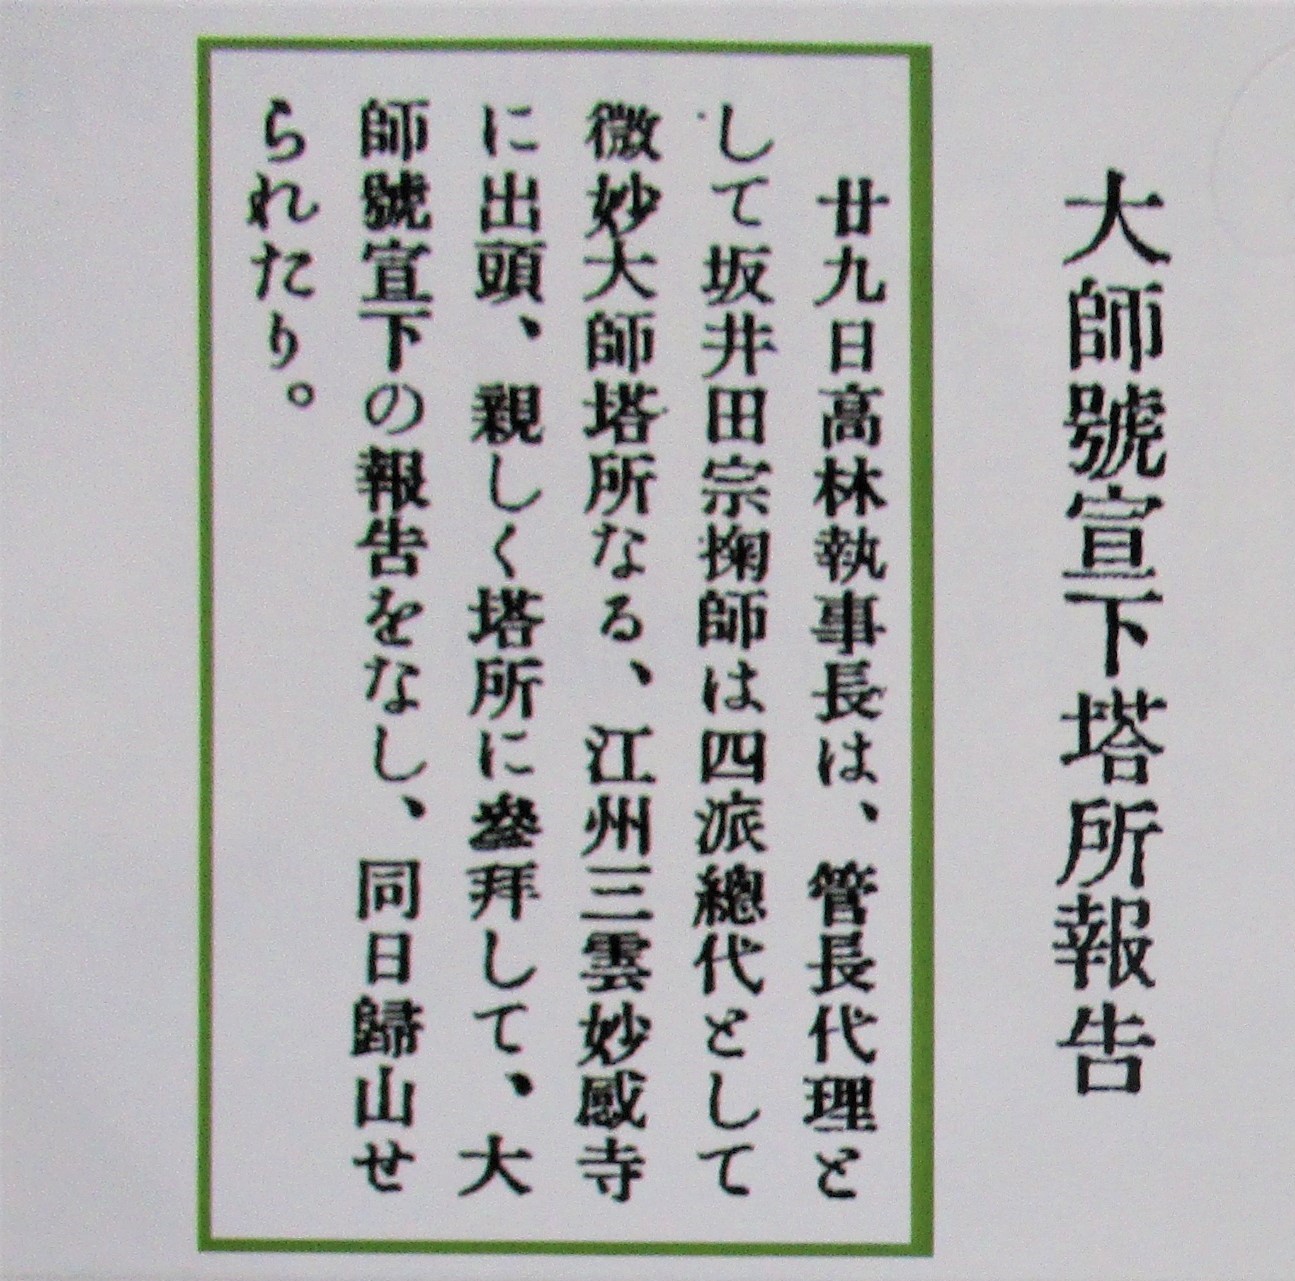 大師號宣下塔所報告
廿九日高林執事長は、管長代理と
して坂井田宗掬師は四派總代として
微妙大師塔所なる、江州三雲妙感寺
に出頭、親しく塔所に參拜して、大
師號宣下の報告をなし、同日歸山せ
られたり。